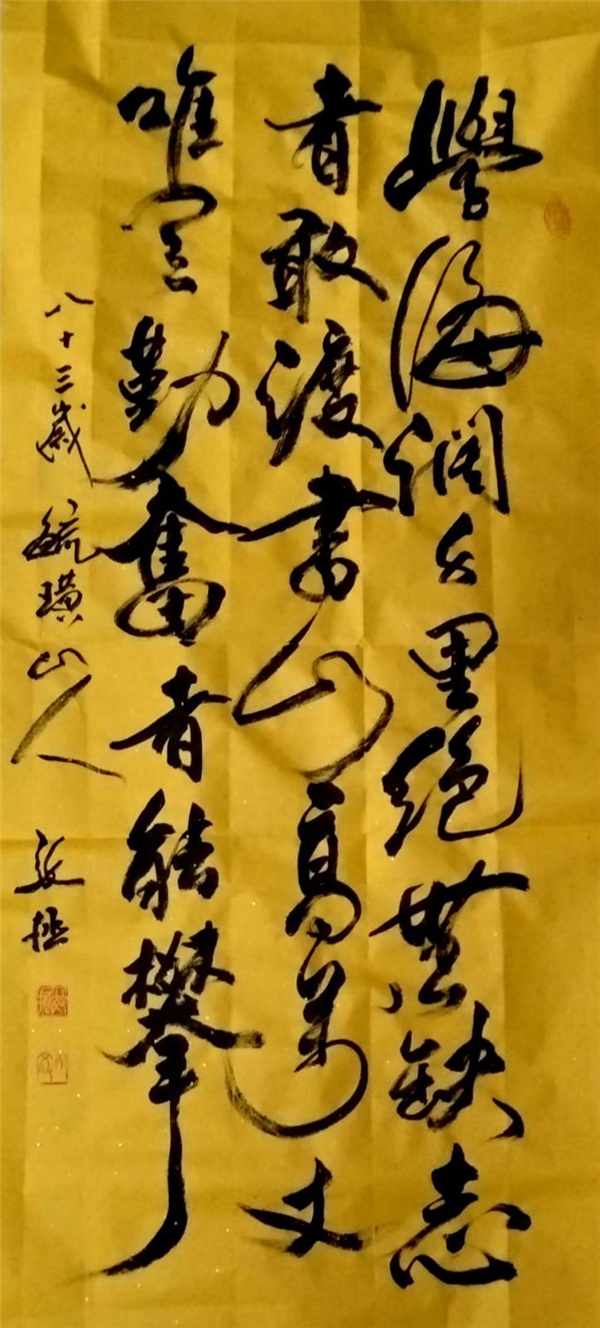 學海濶里絕無缺志
者敢渡書山高萬丈
唯勤奮者能攀
八十三歲
毓璜山人